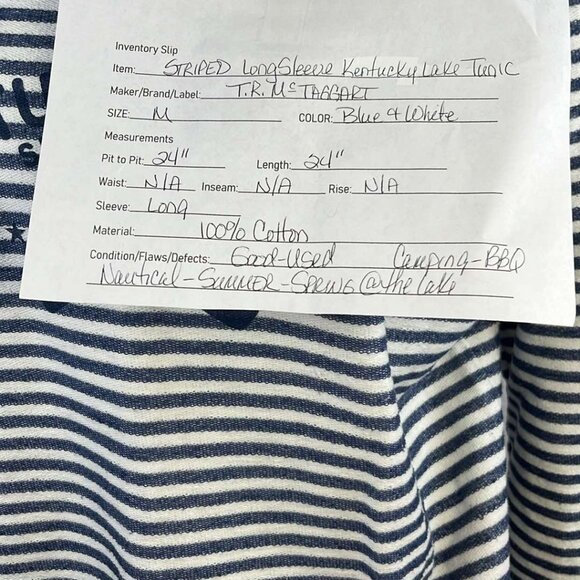 Inventory Slip
Item: STRIPED LongSleeve Kentucky Lake Tunic
Maker/Brand/Label: T.R. McTAGGART
SIZE: M COLOR: Blue & White
Measurements
Pit to Pit: 24" Length: 24"
Waist: N/A Inseam: N/A Rise: N/A
Sleeve: Long
Material: 100% Cotton
Condition/Flaws/Defects: Good-Used Camping-BBQ
Nautical-Summer-Spring @ the lake